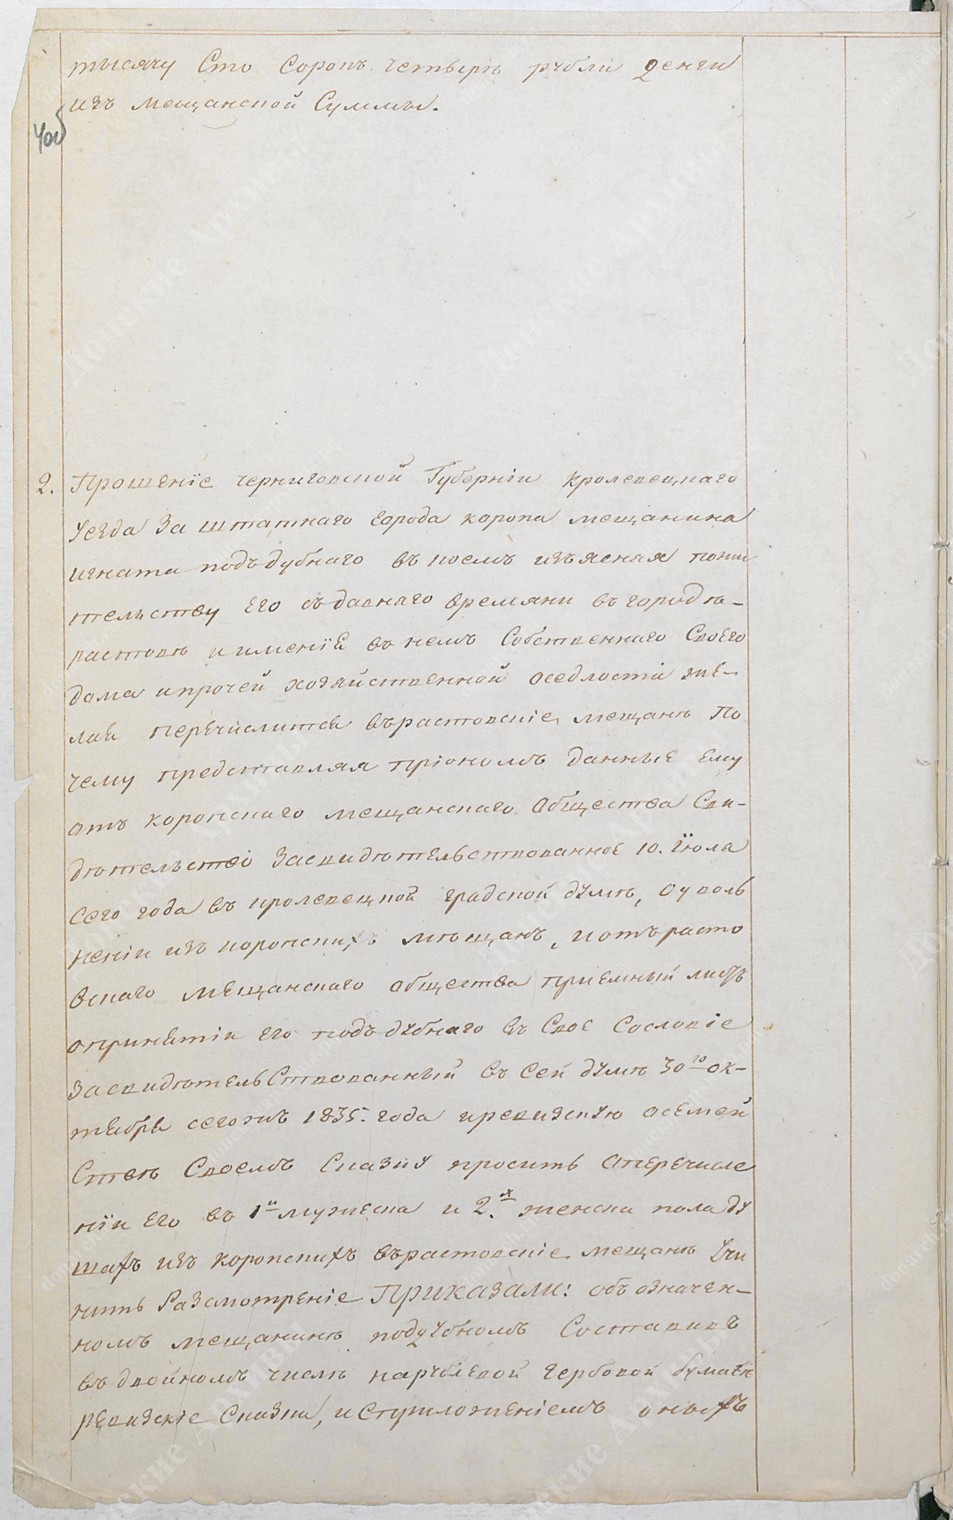 тысячу Сто Сорокъ четыре рубли денги
изъ мещанской Суммы.
40об
2. Прошеніе черниговской Губерніи кролевецкаго
уезда За штатнаго города коропа мещанина
игната подъдубнаго въ коемъ изъясняя пожи
тельству Его съ давнаго времяни въ городѣ-
растовѣ и именіЕ въ немъ Собственнаго СвоЕго
дома ипрочей хозяйственной оседлости же-
лая перечислится върастовскіе мещанѣ По
чему представляя приономъ данные ему
отъ коропскаго мещанскаго общества Сви-
дѣтельство Засвидѣтельствованное 10. Іюля
сего года въ кролевецкой градской думѣ, о уволь
неніи изъ коропскихъ мѣщанъ, и отъ расто
вскаго мещанскаго общества приемный листъ
опринятіи Его подъдубнаго въ Свое Сословіе
Засвидѣтельствованный въ Сей думѣ 30го ок-
тября сегожъ 1835. года иревизскую осемей
Ствѣ Своемъ Сказку проситъ оперечисле
ніи Его въ 1й мужеска и 2.х женска пола ду
шахъ изъ коропскихъ върастовскіе мещанѣ Учи
нить Разсмотреніе Приказали: объ означен-
номъ мещанинѣ подучбномъ Составивъ
въ двойномъ числѣ нарублевой гербовой бумагѣ
ревизскіе Сказки, и Сприложеніемъ оныхъ